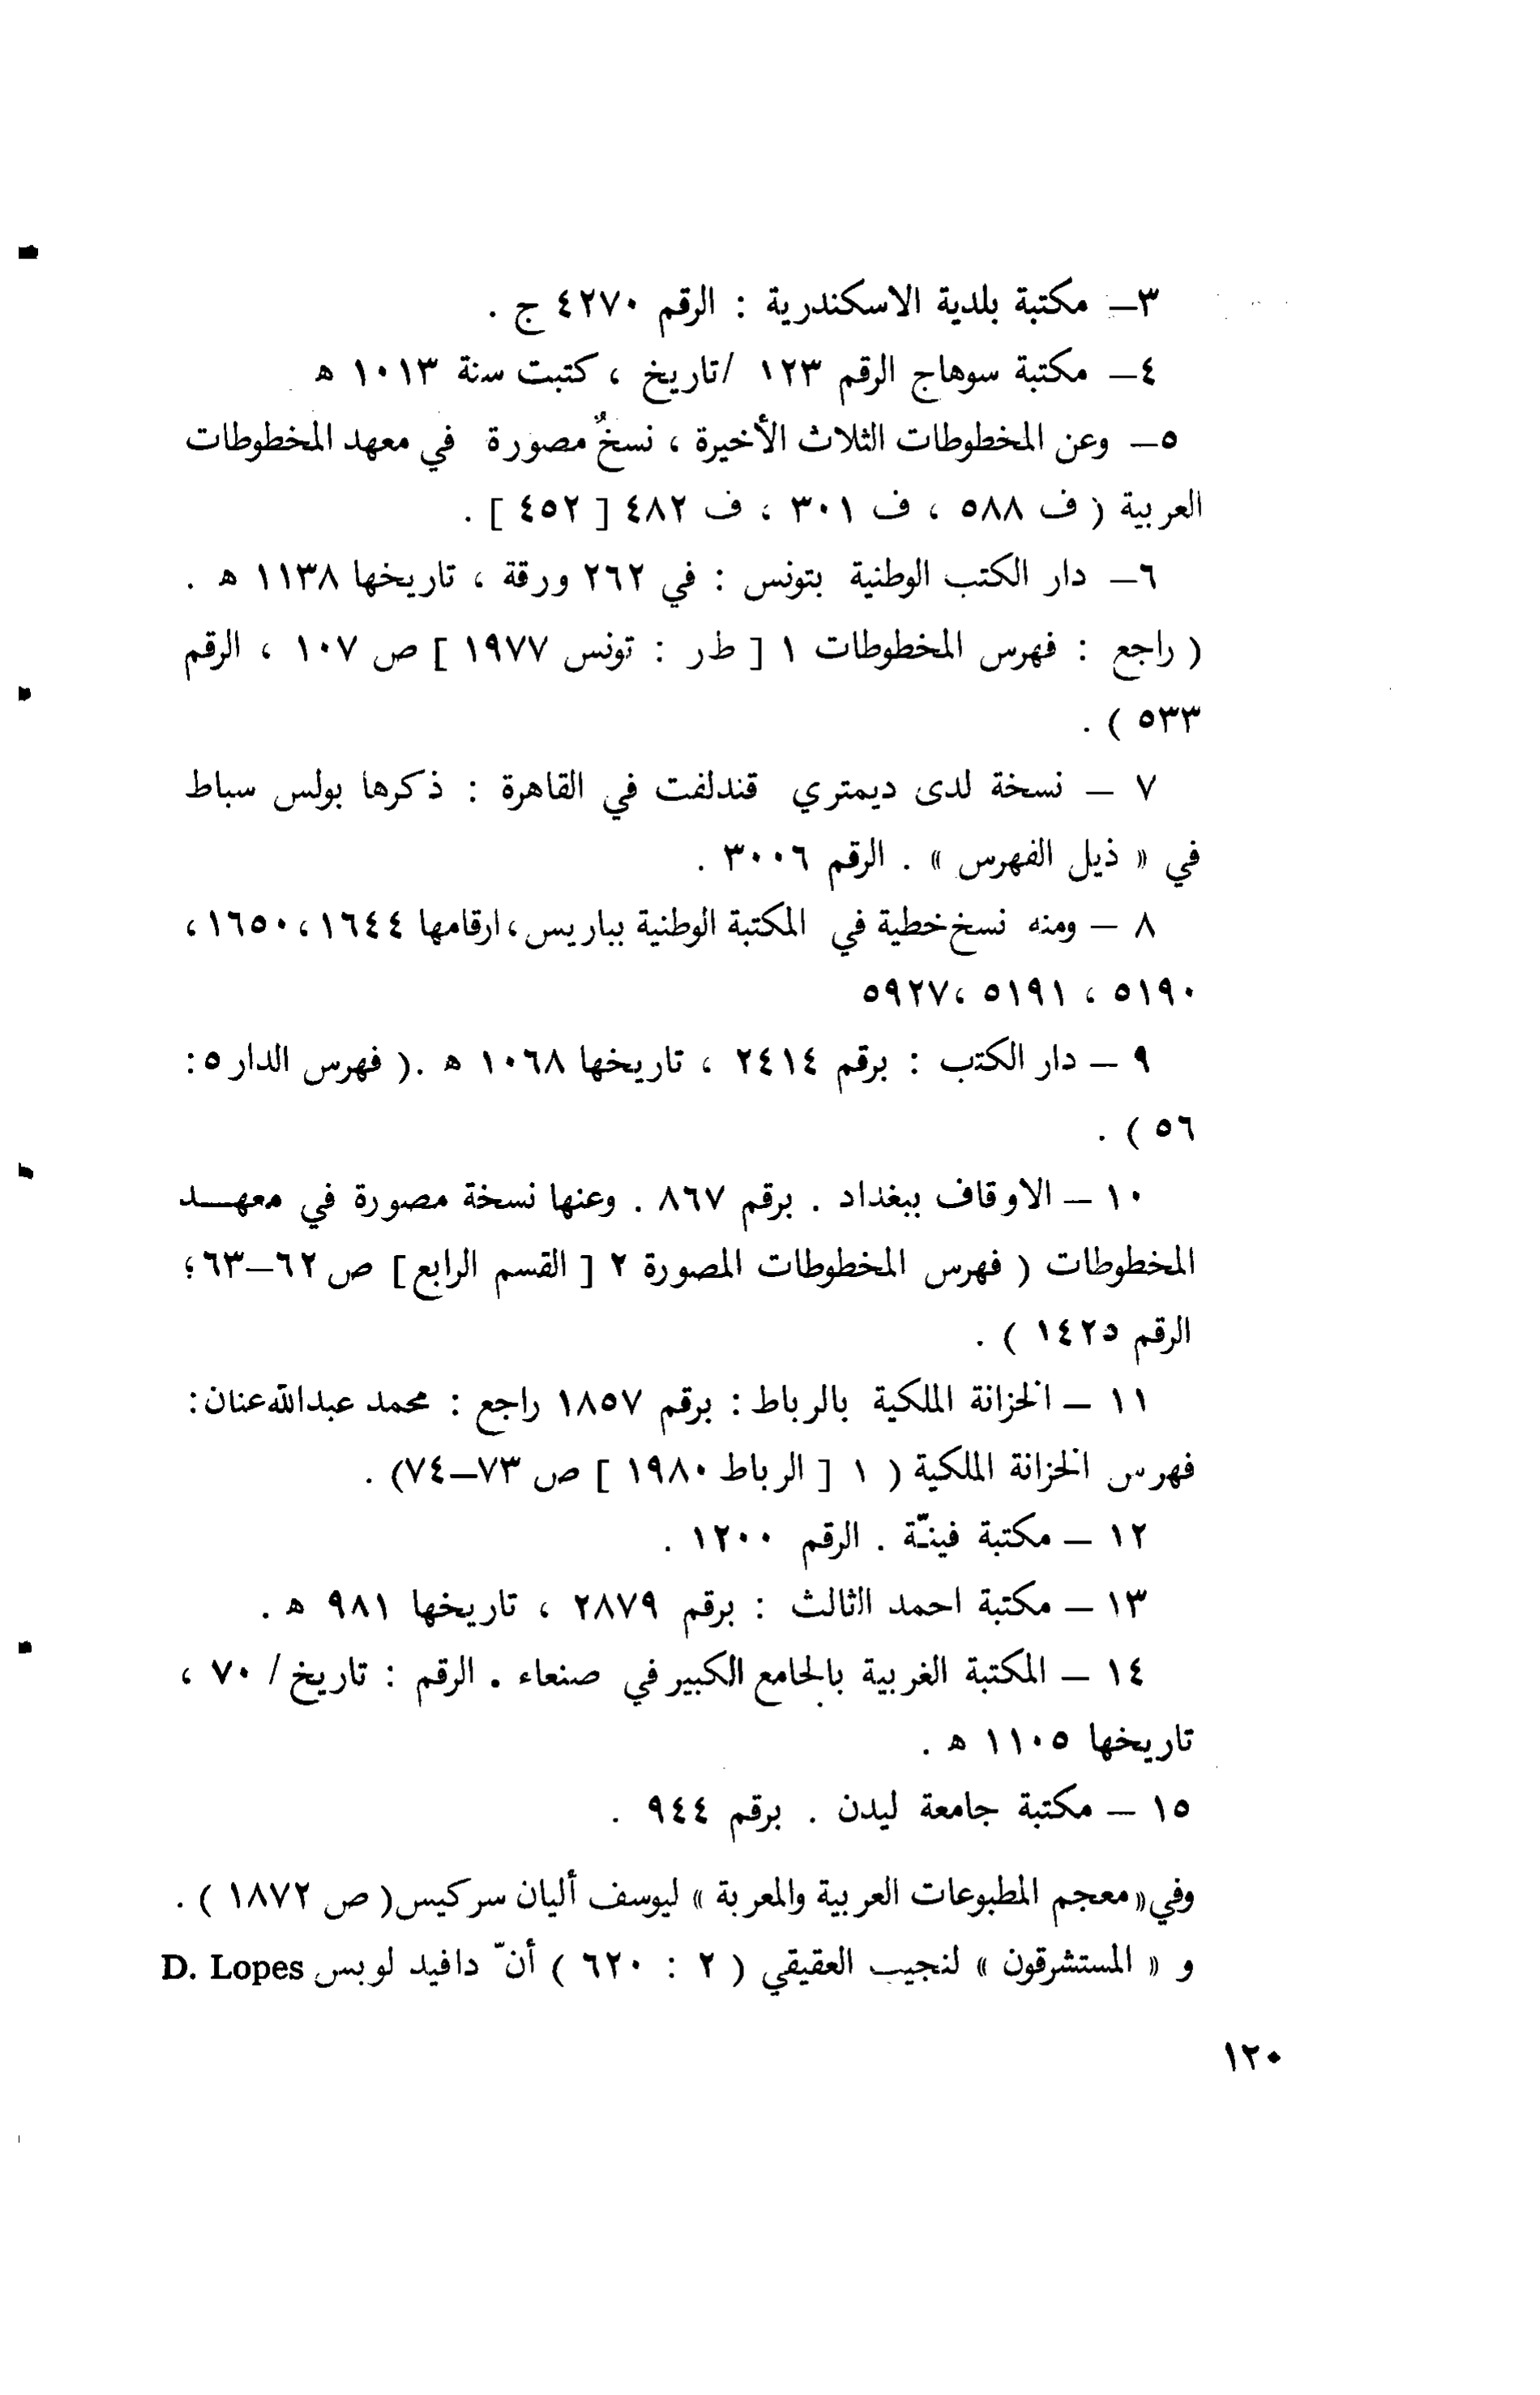 ٣– مكتبة بلدية الاسكندرية : الرقم ٤٢٧٠ ج .
٤– مكتبة سوهاج الرقم ١٢٣ /تاريخ ، كتبت سنة ١٠١٣ ه
٥– وعن المخطوطات الثلاث الأخيرة ، نسخٌ مصورة في معهد المخطوطات
العربية ( ف ٥٨٨ ، ف ٣٠١ ، ف ٤٨٢ [ ٤٥٢ ] .
٦– دار الكتب الوطنية بتونس : في ٢٦٢ ورقة ، تاريخها ١١٣٨ ه .
( راجع : فهرس المخطوطات ١ [ ط ر : تونس ١٩٧٧ ] ص ١٠٧ ، الرقم
٥٣٣ ) .
٧ – نسخة لدى ديمتري قندلفت في القاهرة : ذكرها بولس سباط
في « ذيل الفهرس » . الرقم ٣٠٠٦ .
٨ – ومنه نسخ خطية في المكتبة الوطنية بباريس، ارقامها ١٦٤٤ ، ١٦٥٠ ،
٥١٩٠ ، ٥١٩١ ، ٥٩٢٧
٩ – دار الكتب : برقم ٢٤١٤ ، تاريخها ١٠٦٨ ه .( فهرس الدار ٥ :
٥٦ ) .
١٠ – الاوقاف ببغداد . برقم ٨٦٧ . وعنها نسخة مصورة في معهـــد
المخطوطات ( فهرس المخطوطات المصورة ٢ [ القسم الرابع ] ص ٦٢–٦٣ ؛
الرقم ١٤٢٥ ) .
١١ – الخزانة الملكية بالرباط : برقم ١٨٥٧ راجع : محمد عبدالله عنان :
فهرس الخزانة الملكية ( ١ [ الرباط ١٩٨٠ ] ص ٧٣–٧٤) .
١٢ – مكتبة فينّة . الرقم ١٢٠٠ .
١٣ – مكتبة احمد الثالث : برقم ٢٨٧٩ ، تاريخها ٩٨١ ه .
١٤ – المكتبة الغربية بالجامع الكبير في صنعاء . الرقم : تاريخ / ٧٠ ،
تاريخها ١١٠٥ ه .
١٥ – مكتبة جامعة ليدن . برقم ٩٤٤ .
وفي «معجم المطبوعات العربية والمعربة » ليوسف أليان سركيس ( ص ١٨٧٢ ) .
و « المستشرقون » لنجيب العقيقي ( ٢ : ٦٢٠ ) أنّ دافيد لوبس D. Lopes
١٢٠